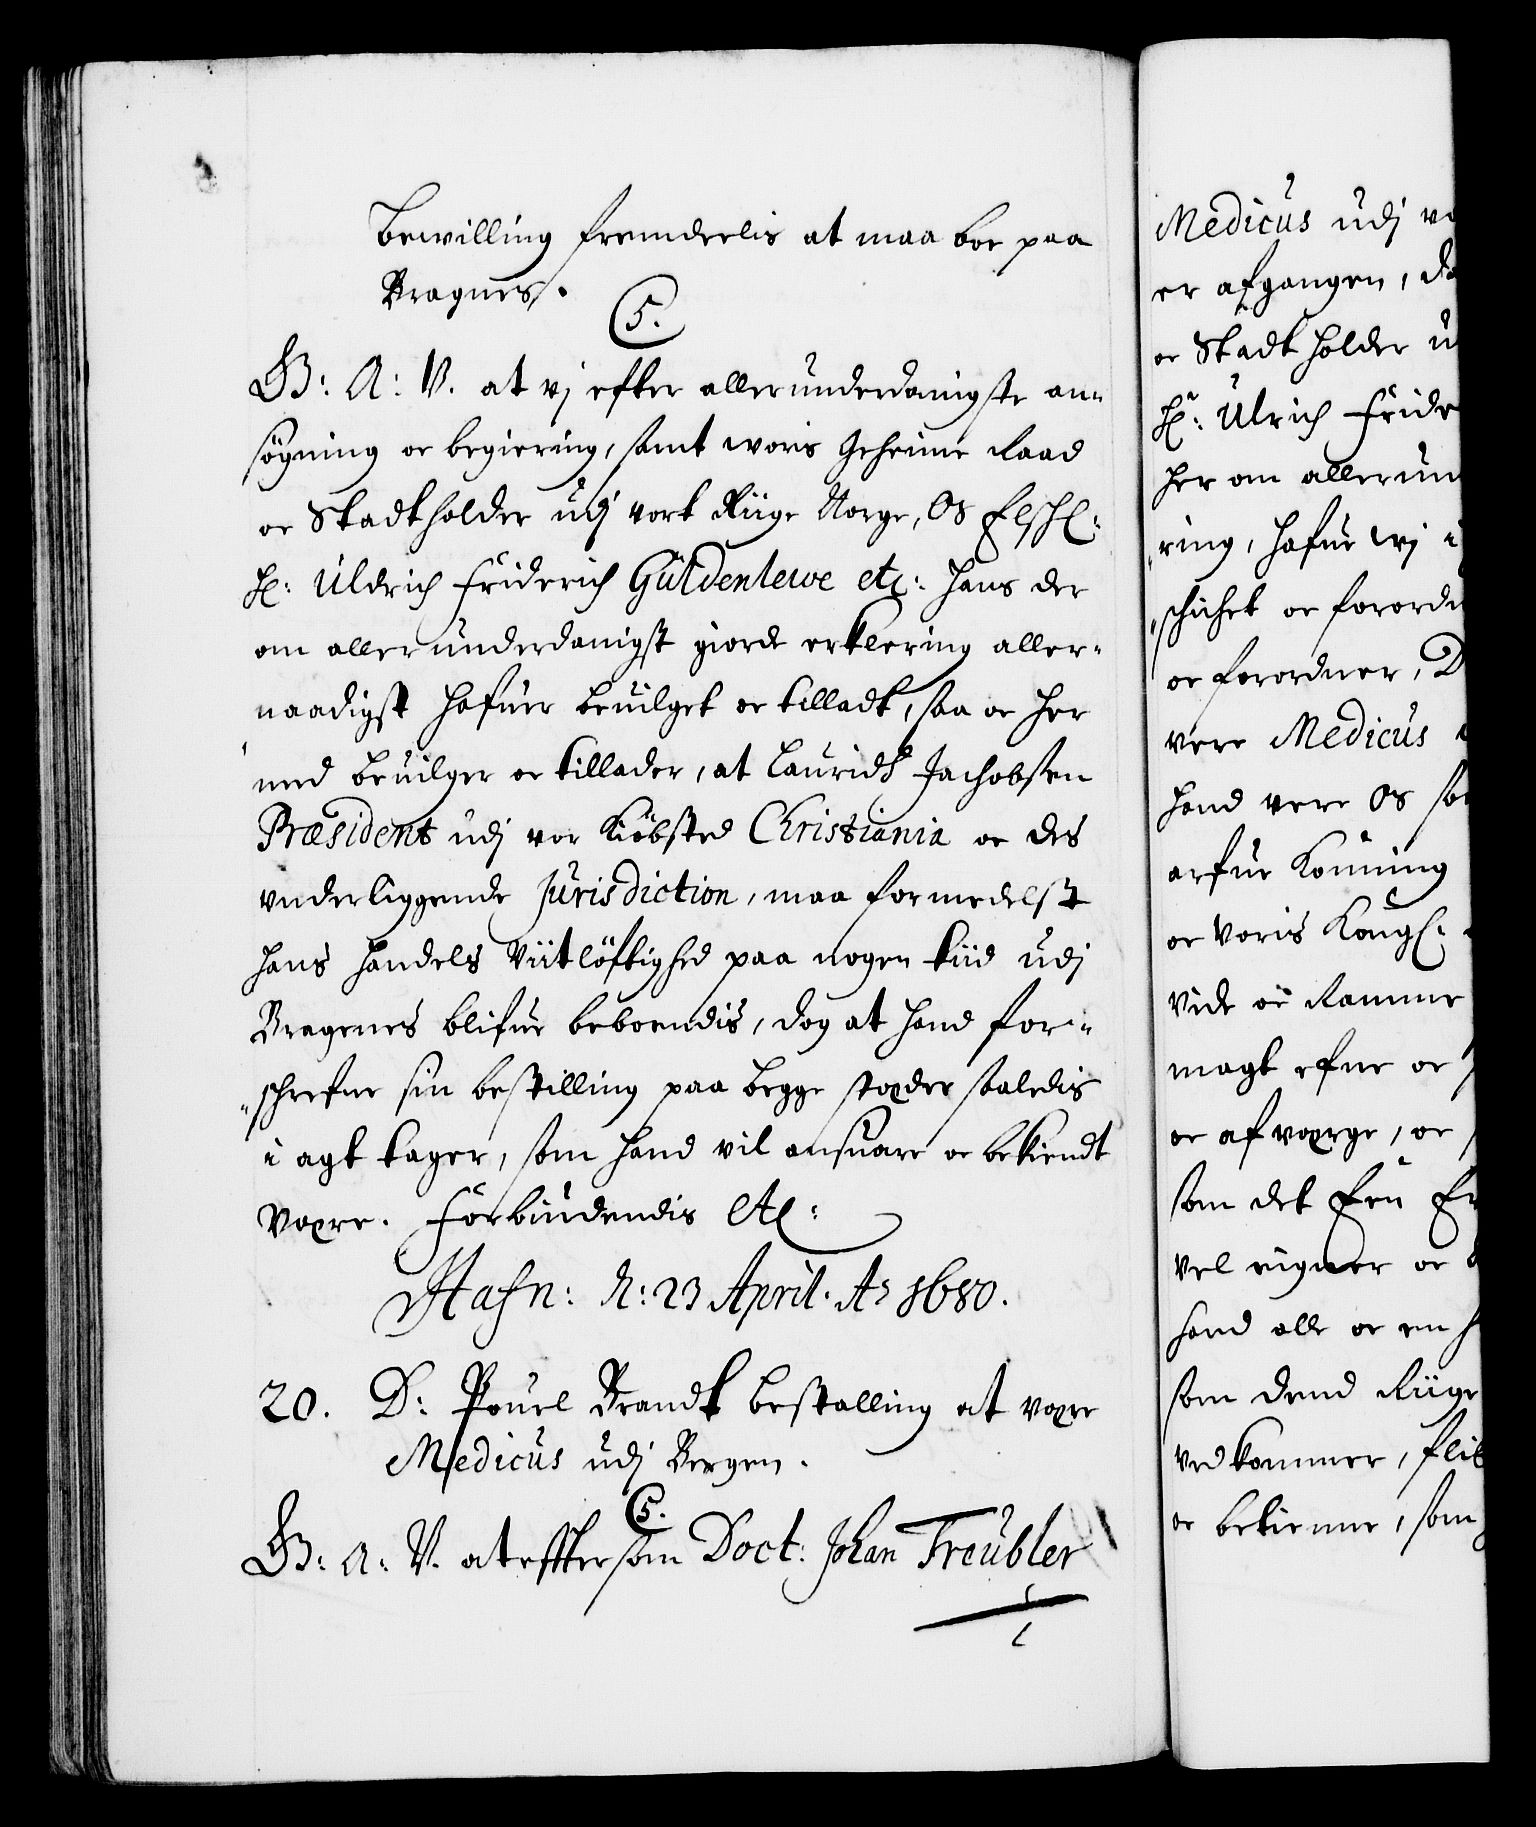 bewilling fremdeelis at maa boe paa
Bragnes.
C5.
G: A: V. at vj efter allerunderdanigste an=
søgning oc begiering, samt woris Geheime Raad
oc Stadtholder udj vort Riige Norge, Os Elskl:
Hr: Uldrich Friderich Güldenlewe etc: hans der
om allerunderdanigst giorde erklering aller=
naadigst hafuer beuilget oc tilladt, saa oc her
med beuilger oc tillader, at Lauridtz Jachobsen
Præsident udj vor Kiøbsted Christiania oc des
vnderliggende Jurisdiction, maa formedelst
hans Handels Viitløftighed paa nogen tiid udj
Bragenes blifue beboendis, dog at hand for=
=schrefne sin bestilling paa begge stæder saaledis
i agt tager, som hand vil ansuare oc bekiendt
være. Forbiudendis etc:
Hafn: d: 23 April. Ao 1680.
20. D: Pouel Brandt bestalling at være
Medicus udj Bergen.
C5.
G: A: V. at eftersom Doct: Johan Treubler
Medicus udj
er afgangen,
oc Stadtholder
Hr: Ulrich
her om
=ring, hafue wj
=schichet oc
oc forordner,
vere Medicus
hand vere Os
arfue Konning
oc voris Kongl:
Vide oc Ramme
magt efne oc
oc afværge, oc
som det Een
vel eigner oc
hand alle oc en
som dend Riige
vedkommer,
oc bekienne, som